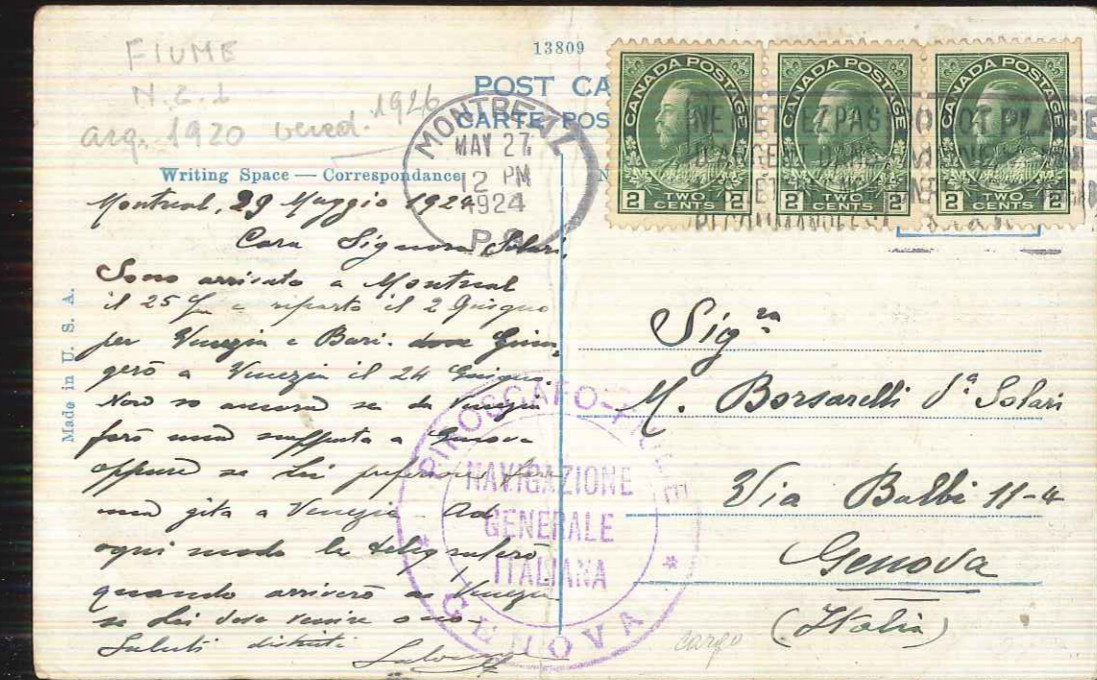 FIUME
N.G.I.
acq. 1920 vend. 1926
13809
POST CA
CARTE POS
MONTREAL
MAY 27
12 PM
1924
P.Q.
CANADA POSTAGE
2 TWO CENTS 2
CANADA POSTAGE
2 TWO CENTS 2
CANADA POSTAGE
2 TWO CENTS 2
Writing Space — Correspondance
Made in U. S. A.
Montreal, 29 Maggio 1924
Cara Signora Solari,
Sono arrivato a Montreal
il 25 e riparto il 2 Giugno
per Venezia e Bari. dove Giun,
gerò a Venezia il 24 Giugno.
Non so ancora se da Venezia
farò una a Genova
oppure se Lei
una gita a Venezia. Ad
ogni modo le telegraferò
quando arriverò a Venezia
se Lei deve venire o no.
Saluti distinti
PIROSCAFO FIUME
NAVIGAZIONE
GENERALE
ITALIANA
* GENOVA *
Sig.ra
M. Borsarelli Solari
Via Balbi 11-4
Genova
(Italia)
cargo